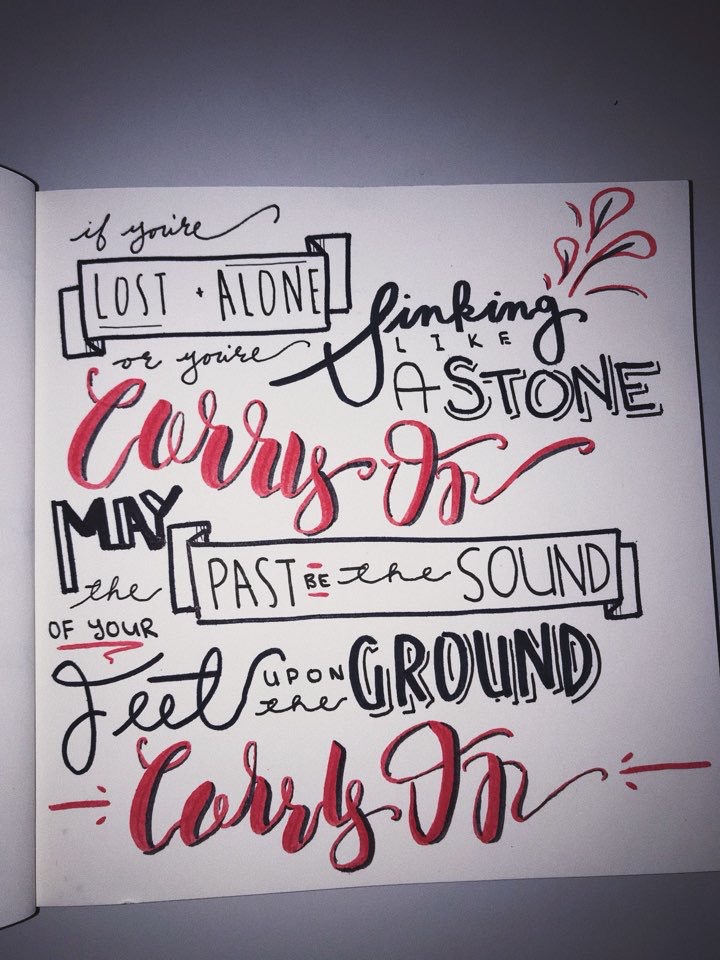 if you're
LOST + ALONE
or you're
Sinking
LIKE
A STONE
Carry On
MAY
the PAST BE the SOUND
OF YOUR
Feet UPON the GROUND
Carry On